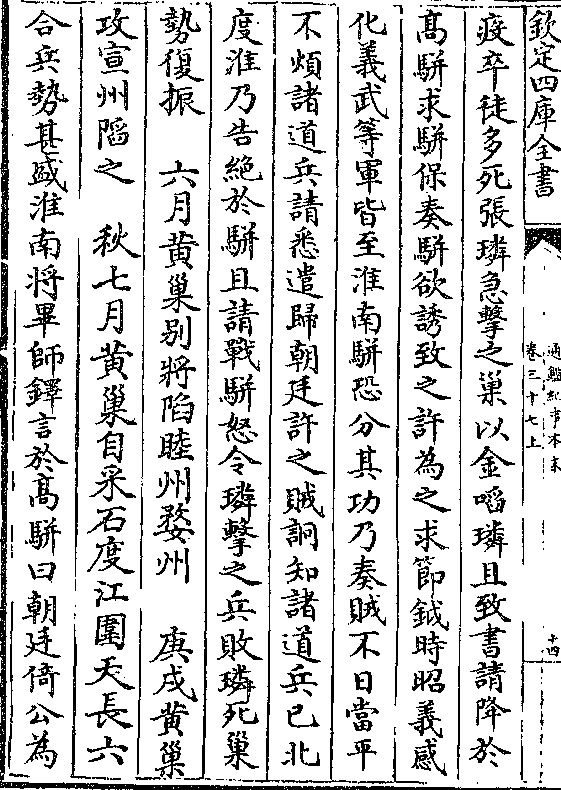 欽定四庫全書
通鑑紀事本末
卷三十七上
十四
疫卒徒多死張璘急擊之巢以金啗璘且致書請降於
髙駢求駢保奏駢欲誘致之許為之求節鉞時昭義感
化義武等軍皆至淮南駢恐分其功乃奏賊不日當平
不煩諸道兵請悉遣歸朝廷許之賊詗知諸道兵已北
度淮乃告絶於駢且請戰駢怒令璘擊之兵敗璘死巢
勢復振　六月黄巢别將陷睦州婺州　庚戌黄巢
攻宣州陷之　秋七月黄巢自采石度江圍天長六
合兵勢甚盛淮南將畢師鐸言於髙駢曰朝廷倚公為